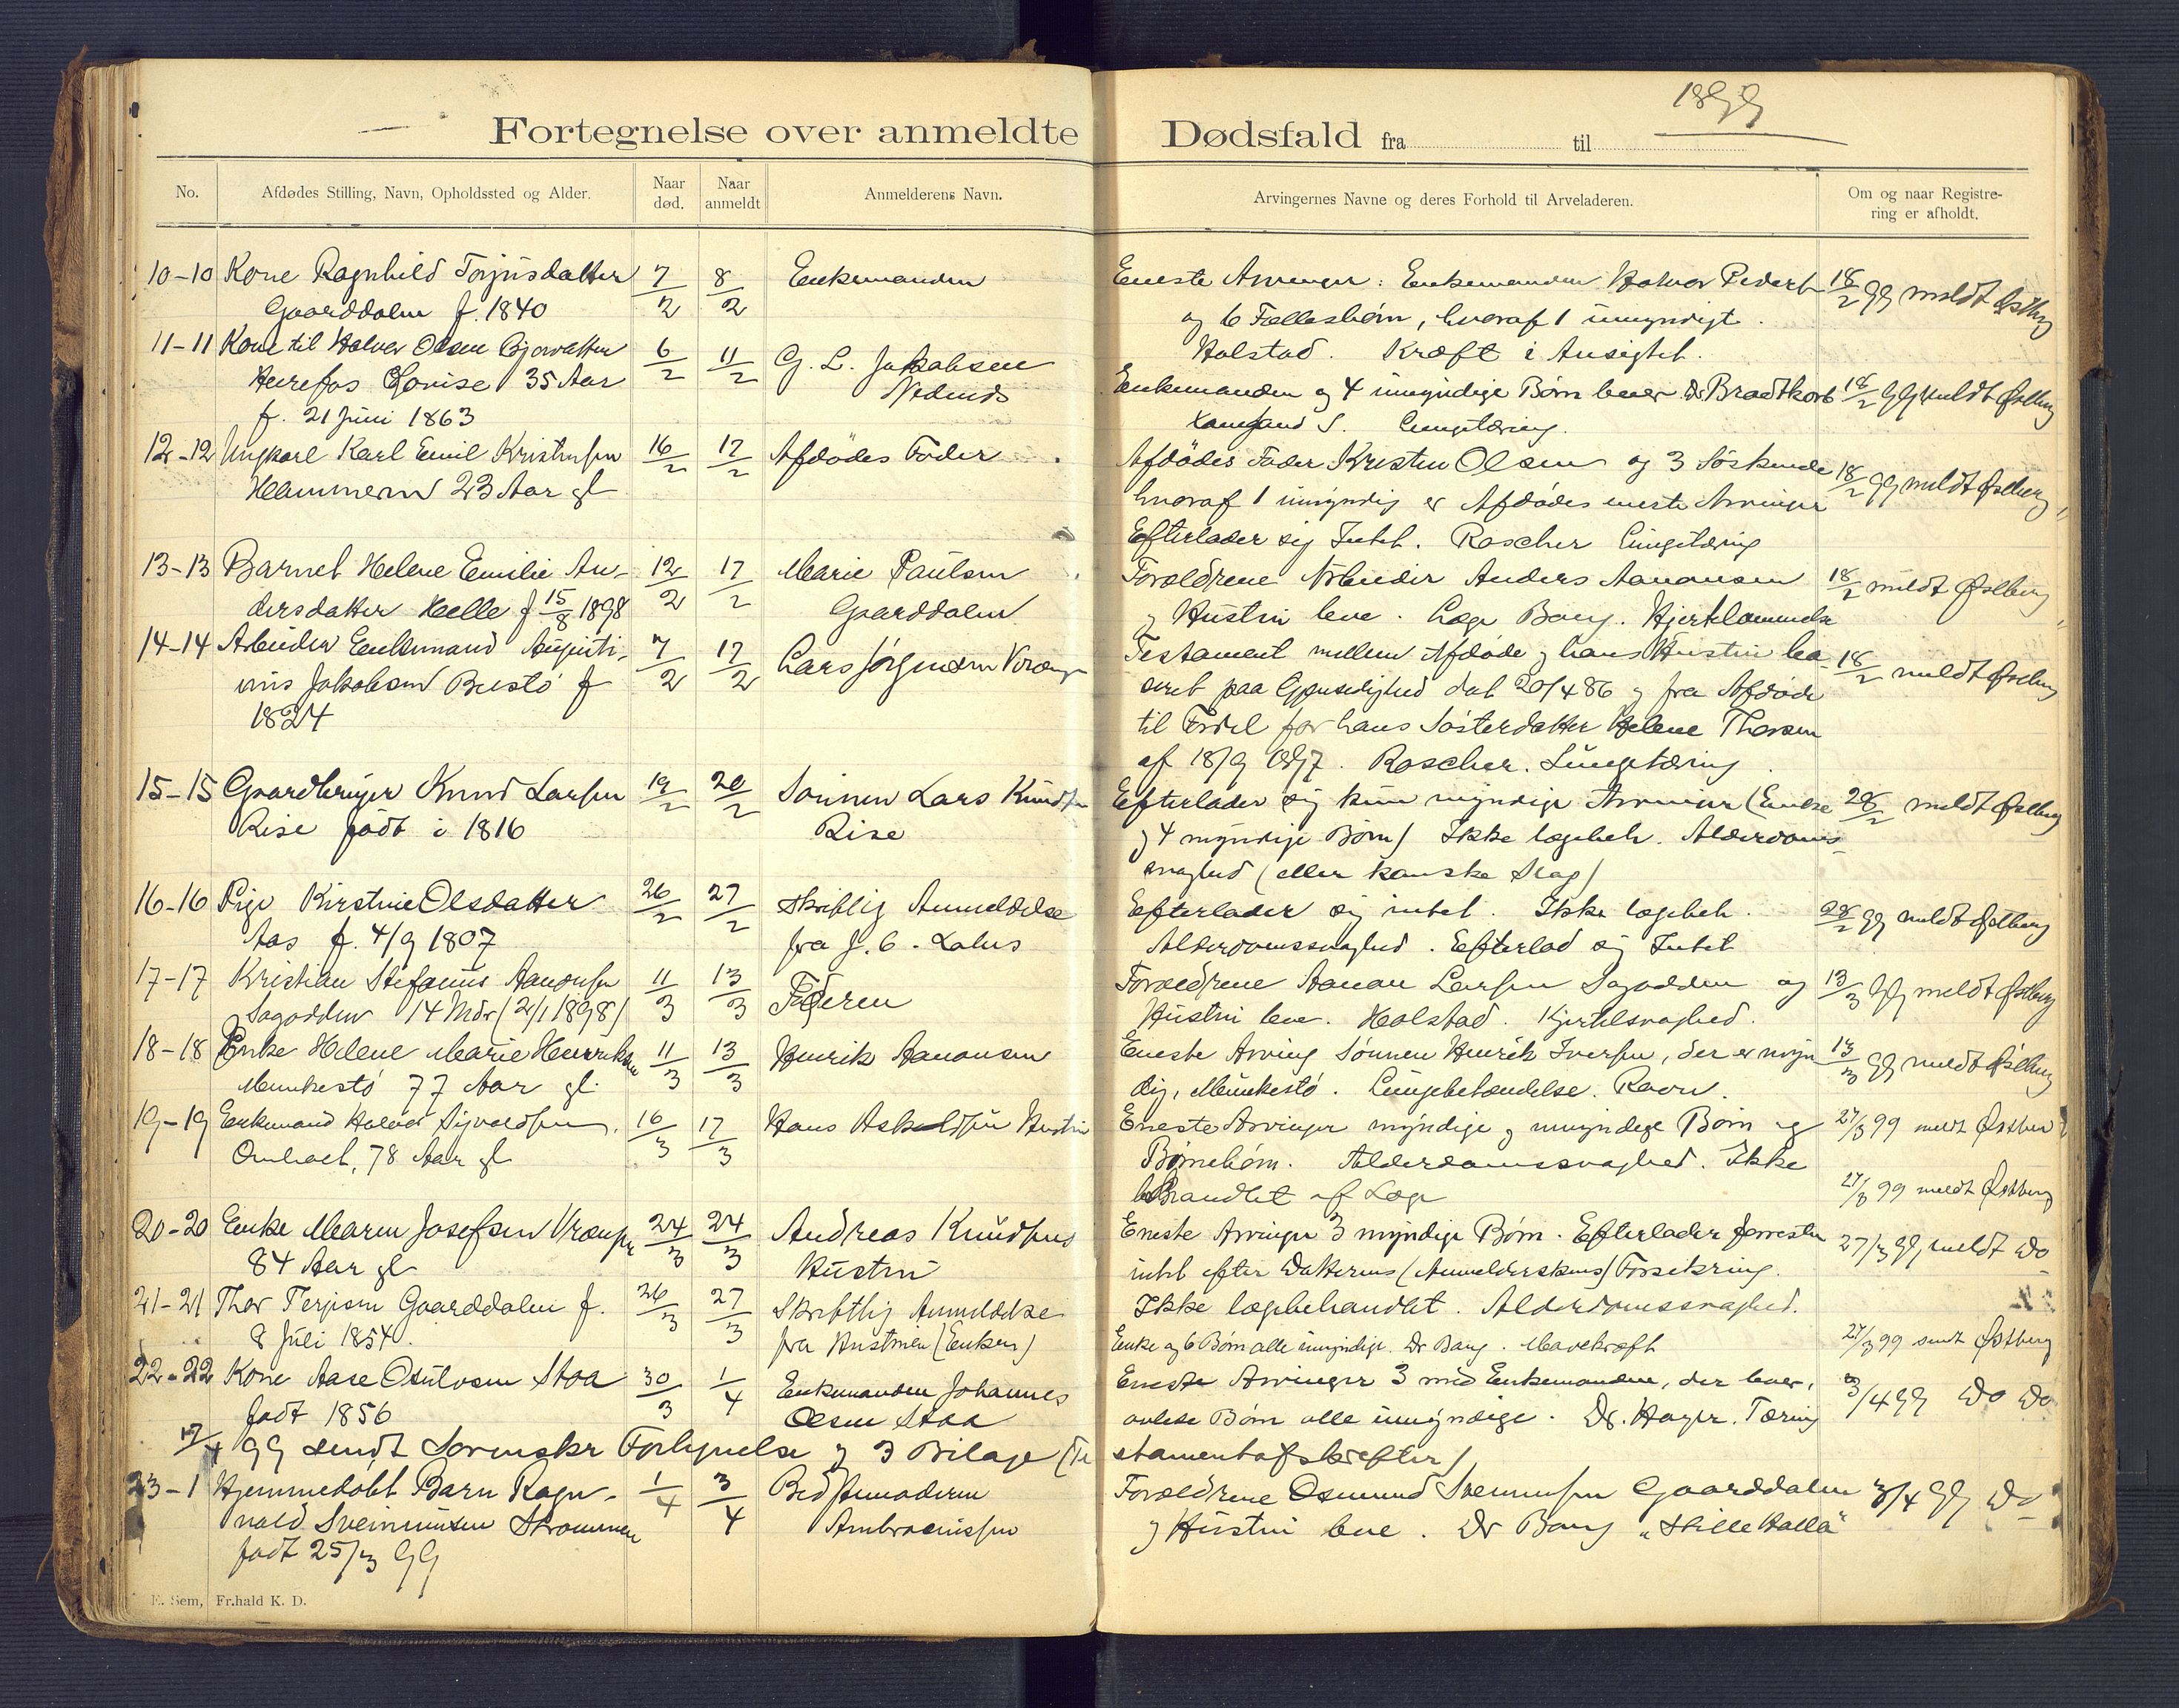 1899
Fortegnelse over anmeldte Dødsfald fra til
No.
Afdødes Stilling, Navn, Opholdssted og Alder.
Naar død.
Naar anmeldt
Anmelderens Navn.
Arvingernes Navne og deres Forhold til Arveladeren.
Om og naar Registre-
ring er afholdt.
10-10 Kone Ragnhild Torjusdatter 7/2 8/2 Enkemanden
Gaarddalen f. 1840
Eneste Arvinger: Enkemanden Halvor Peders
og 6 Fællesbörn, hvoraf 1 umyndigt.
Holstad. Kræft i Ansigtet.
18/2 99 meldt Østberg
11-11 Kone til Halvor Olsen 6/2 11/2 G. L. Jakobsen
Herefos Lovise 35 Aar Nedenes
f. 21 Juni 1863
Enkemanden og 4 umyndige Börn lever. Dr Bradtkorb
S. Lungetæring.
18/2 99 meldt Østberg
12-12 Ungkarl Karl Emil Kristensen 16/2 17/2 Afdödes Fader
Hammeren 23 Aar gl
Afdödes Fader Kristen Olsen og 3 Söskende
hvoraf 1 umyndig er Afdödes eneste Arvinger
Efterlader sig Intet. Roscher Lungetæring
18/2 99 meldt Østberg
13-13 Barnet Helene Emilie An- 12/2 17/2 Marie Paulsen
dersdatter Helle f 15/8 1898 Gaarddalen
Forældrene Arbeider Anders Aanonsen
og Hustru leve. Læge Bang. Hjertelammelse
18/2 meldt Østberg
14-14 Arbeider Enkemand Augusti- 7/2 17/2 Lars Jörgensen Vrænge
nus Jakobsen Bustö f
1824
Testament mellem Afdöde og hans Hustru ba-
seret paa Gjensidighed dat 20/4 86 og fra Afdöde
til Fordel for hans Sösterdatter Helene Thorsen
af 18/9 1897. Roscher. Lungetæring.
18/2 meldt Østberg
15-15 Gaardbruger Knud Larsen 19/2 20/2 Sönnen Lars Knudsen
Rise födt i 1816 Rise
Efterlader sig kun myndige Arvinger (Enke
og 4 myndige Börn) Ikke lægebeh. Alderdoms-
svaghed (eller kanske Slag)
28/2 meldt Østberg
16-16 Pige Kirstine Olsdatter 26/2 27/2 Skriftlig Anmeldelse
Aas f. 4/9 1807 fra J. C.
Efterlader sig intet. Ikke lægebeh.
Alderdomssvaghed. Efterlod sig Intet
28/2 99 meldt Østberg
17-17 Kristian Stefanus Aanonsen 11/3 13/3 Faderen
Sagodden 14 Mdr (2/1 1898)
Forældrene Aanon Larsen Sagodden og
Hustru leve. Holstad. Kjertelsvaghed.
13/3 99 meldt Østberg
18-18 Enke Helene Marie Henriksen 11/3 13/3 Henrik Aanonsen
Munkestö 77 Aar gl.
Eneste Arving Sönnen Henrik Iversen, der er myn
dig, Munkestö. Lungebetændelse. Ravn.
13/3 99 meldt Østberg
19-19 Enkemand Halvor Sigvaldsen, 16/3 17/3 Hans Hustru
78 Aar gl
Eneste Arvinger myndige og umyndige Börn og
Börnebörn. Alderdomssvaghed. Ikke
behandlet af Læge
27/3 99 meldt Østberg
27/3 99 meldt Østberg
20-20 Enke Maren Josefsen Vrænge 24/3 24/3 Andreas Knudsens
84 Aar gl Hustru
Eneste Arvinger 3 myndige Börn. Efterlader forresten
intet efter Datterens (Anmelderskens) Forsikring.
Ikke lægebehandlet. Alderdomssvaghed.
27/3 99 meldt Do
21-21 Thor Terjesen Gaarddalen f. 26/3 27/3 Skriftlig Anmeldelse
8 Juli 1854. fra Hustruen (Enken)
Enke og 6 Börn alle umyndige. Dr Bang. Mavekræft
27/3 99 sendt Østberg
22-22 Kone Aase Osulvsen Staa 30/3 1/4 Enkemanden Johannes
födt 1856 Olsen Staa
Eneste Arvinger 3 med Enkemanden, der lever,
avlede Börn alle umyndige. Dr. Hager. Tæring
3/4 99 Do Do
17/4 99 sendt Sorenskr Fortegnelse og 3 Bilage (Te
stamentafskrefter)
23-1 Hjemmedöbt Barn Ragn- 1/4 3/4 Bedstemoderen
vald Sveinunsen Strömmen Ambrosiussen
födt 25/3 99
Forældrene Osmund Sveinunsen Gaarddalen
og Hustru leve. Dr Bang "
3/4 99 Do
E. Sem, Fr.hald K. D.